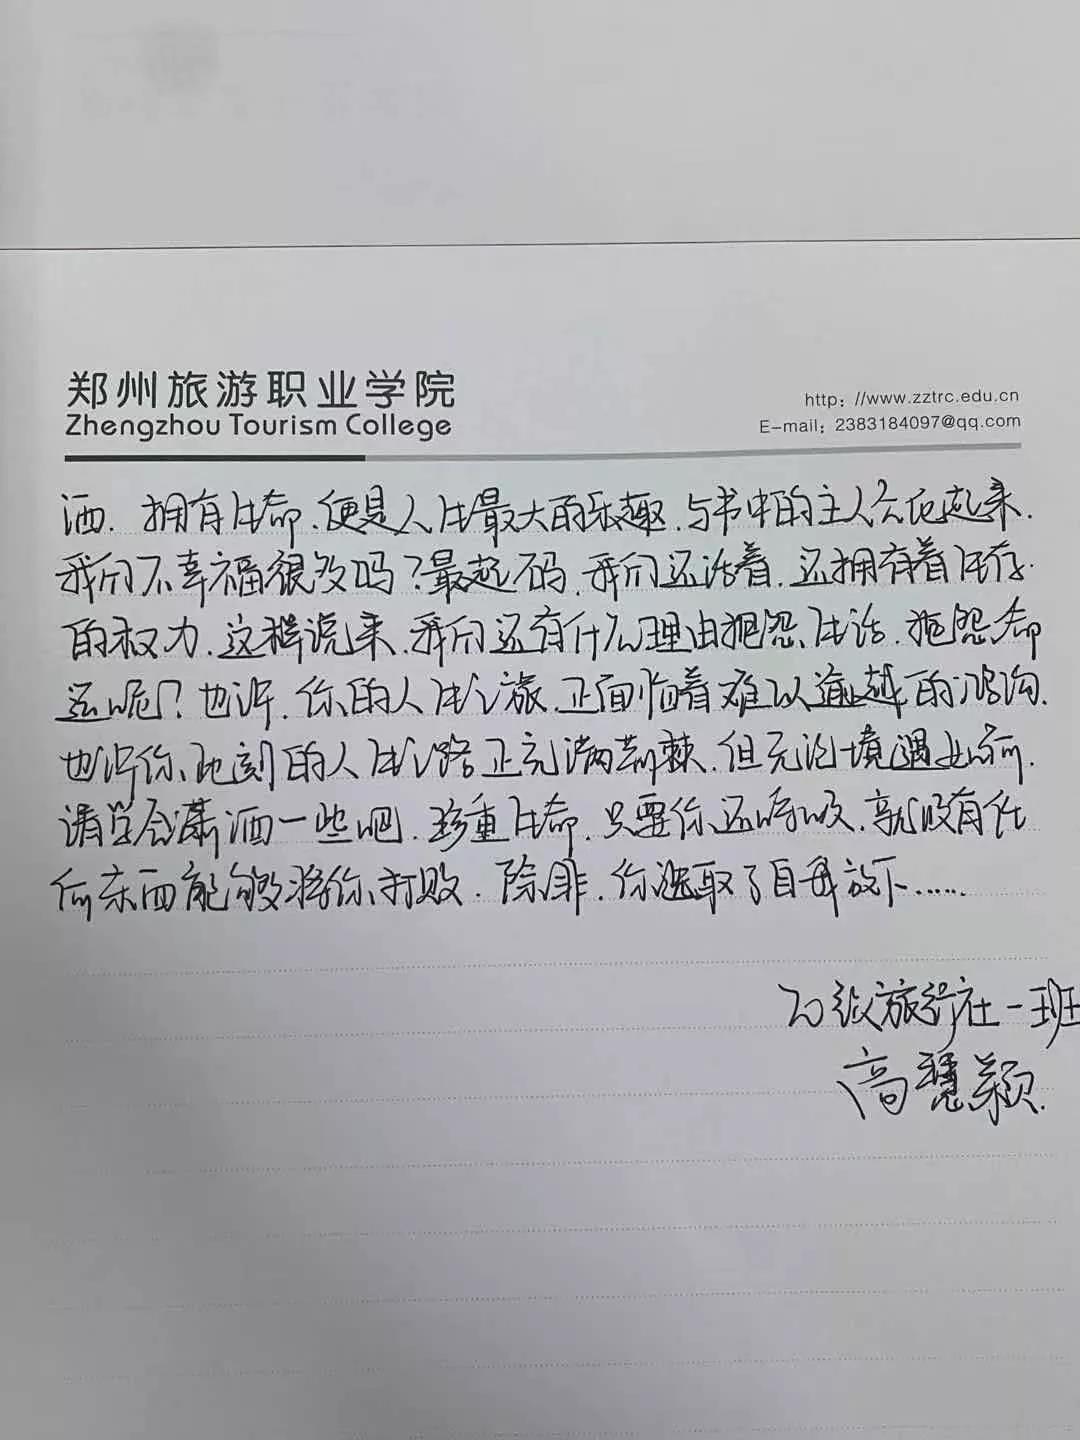 郑州旅游职业学院
Zhengzhou Tourism College
http: //www.zztrc.edu.cn
E-mail: 2383184097@qq.com
洒.拥有生命.便是人生最大的乐趣.与书中的主人公比起来.
我们不幸福很多吗?最起码.我们还活着.还拥有着生存.
的权力.这样说来.我们还有什么理由抱怨生活.抱怨命
运呢?也许.你的人生之旅.正面临着难以逾越的鸿沟.
也许你此刻的人生之路正充满荆棘.但无论境遇如何.
请学会潇洒一些吧.珍重生命.只要你还呼吸.就没有任
何东西能够将你打败.除非.你选取了自我放下......
级旅行社一班
高慧颖.